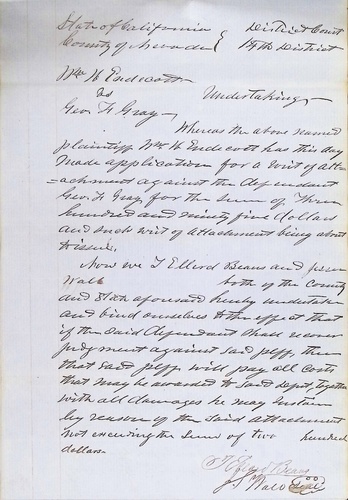 State of California } District Court
County of Nevada } 14th District
Wm H Endecott
vs
Geo. F. Gray. Undertaking
Whereas the above named
plaintiff Wm H Endecott has this day
made application for a writ of att-
=achment against the defendant
Geo. F. Gray, for the sum of Three
hundred and ninety five dollars
and such writ of attachment being about
to issue,
Now we T Ellerd Beans and
Wald both of the County
and State aforesaid hereby undertake
and bind ourselves to the effect that
if the said defendant shall recover
judgment against said plff, then
that said plff will pay all costs
that may be awarded to said Dept, together
with all damages he may sustain
by reason of the said attachment
not exceeding the sum of two hundred
dollars.
T Ellerd Beans